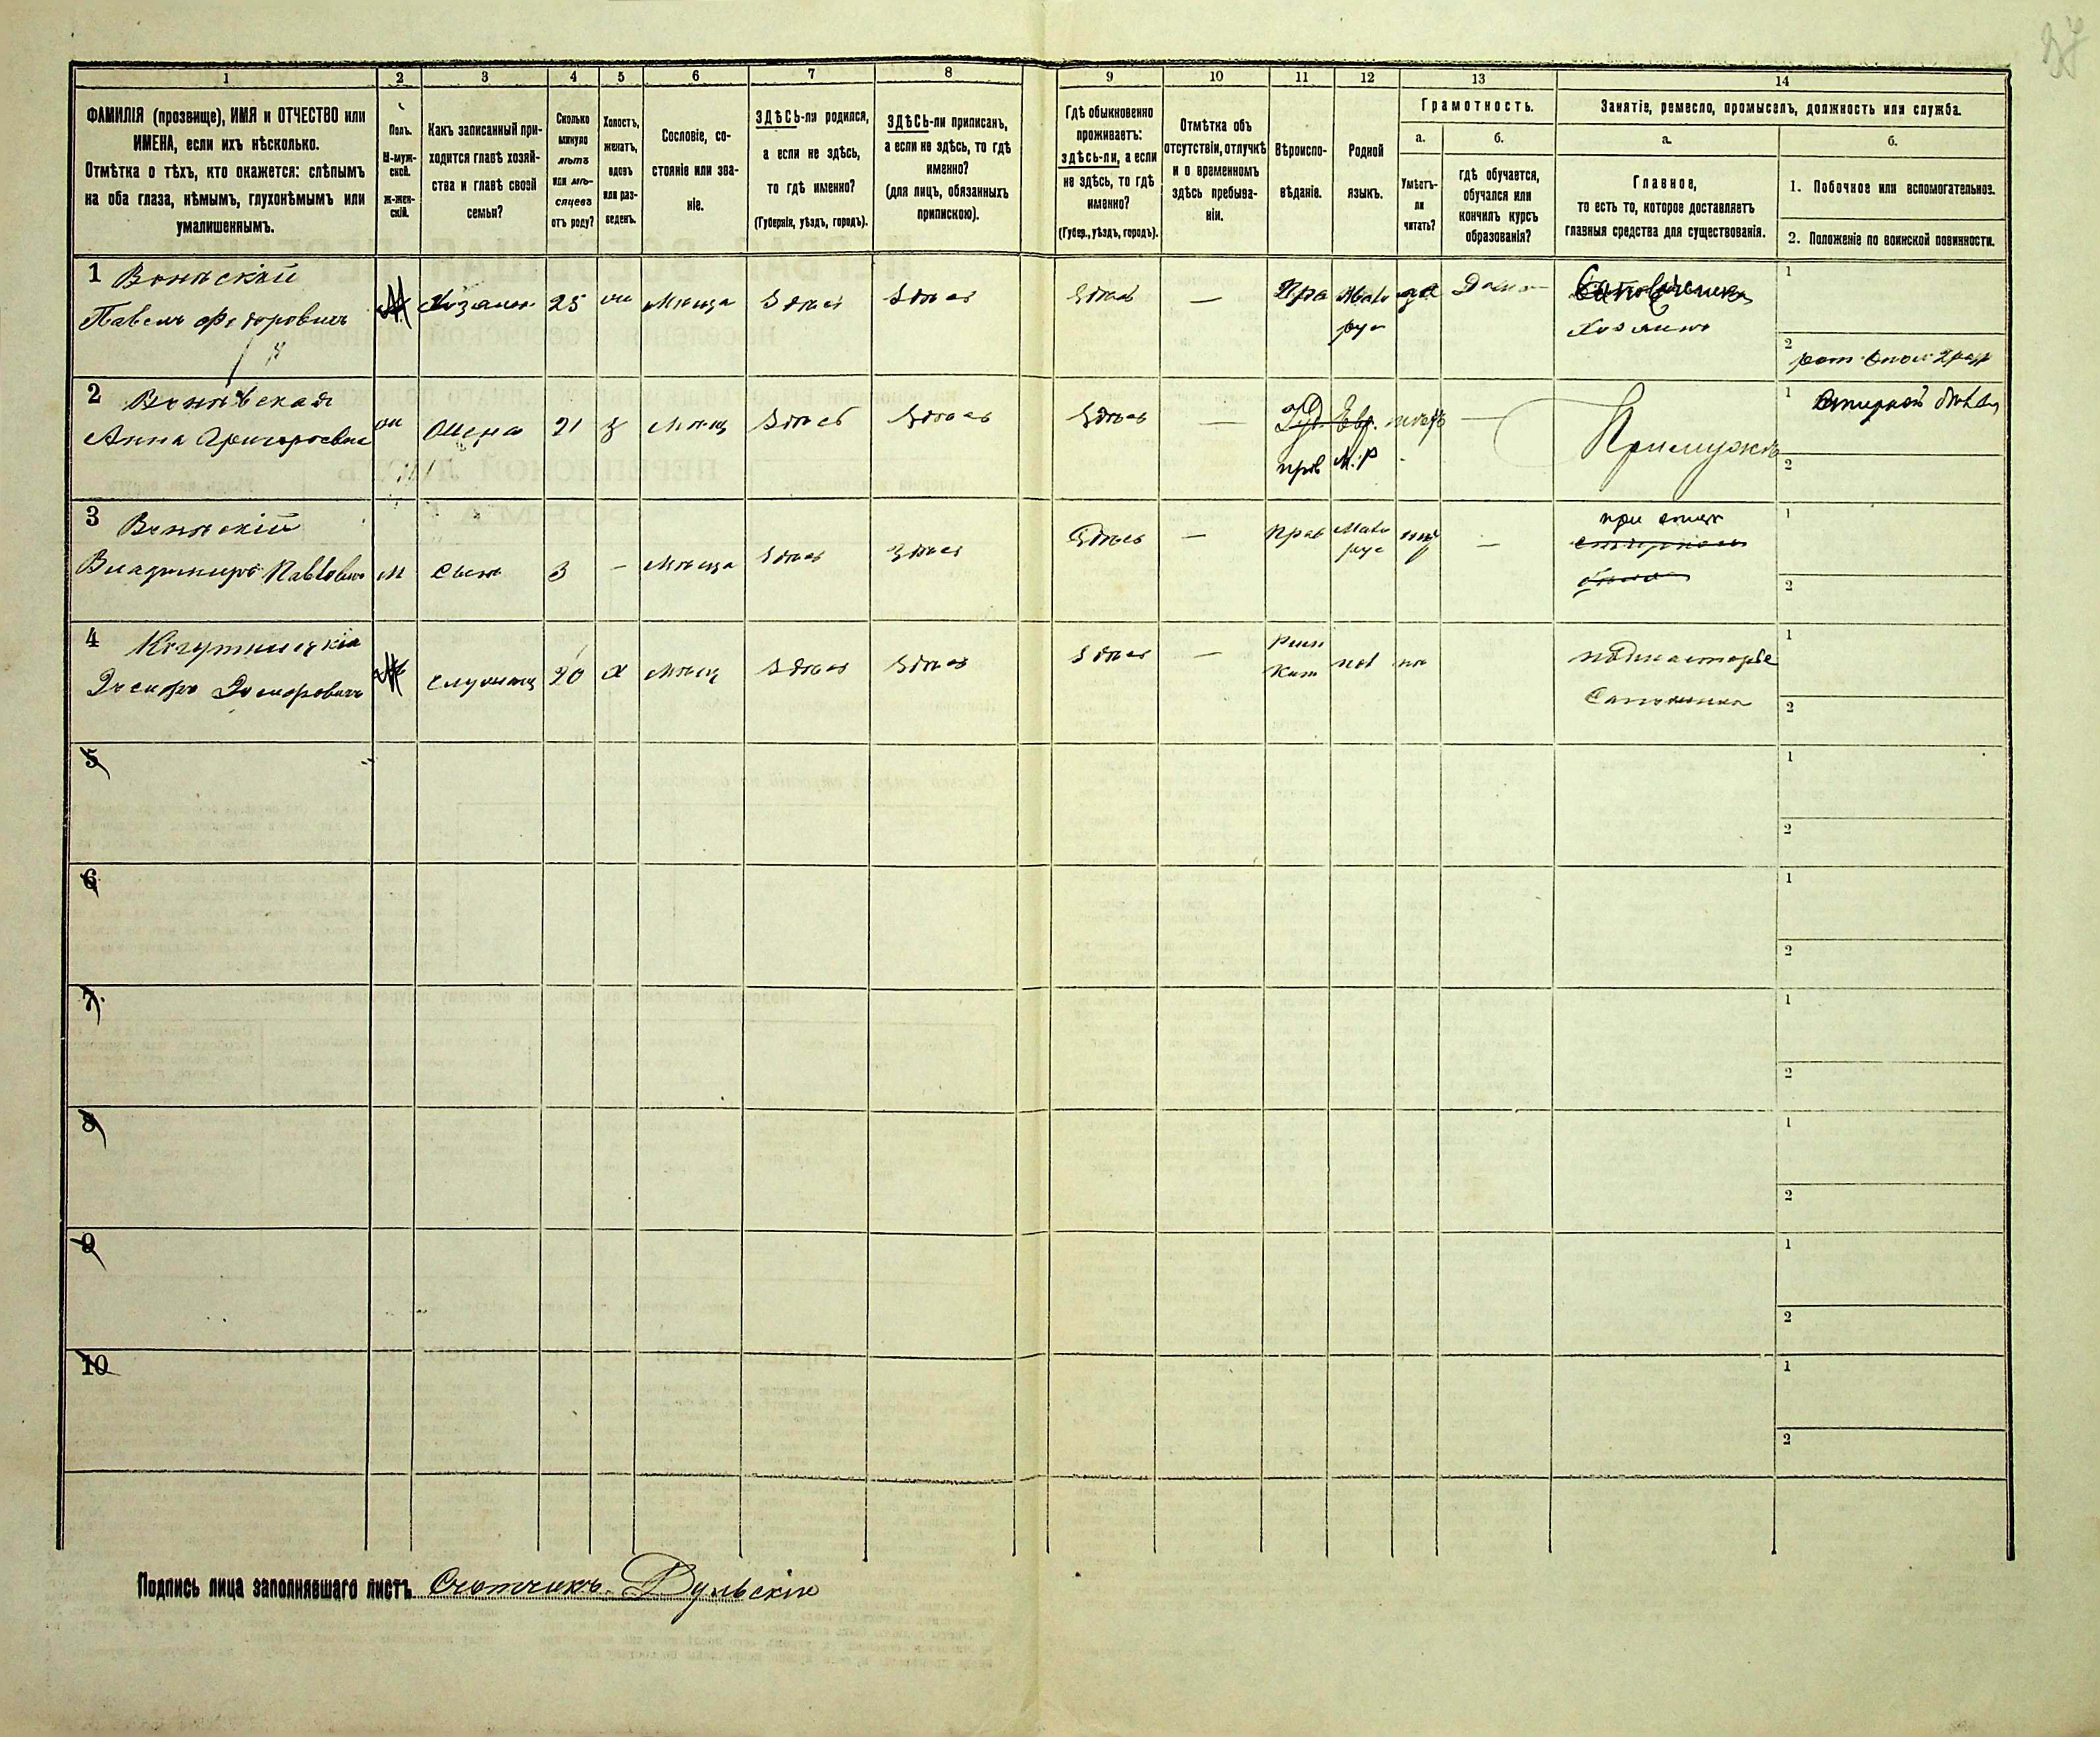 37
1
2
3
4
5
6
7
8
9
10
11
12
13
14
ФАМИЛІЯ (прозвище), ИМЯ и ОТЧЕСТВО или
ИМЕНА, если ихъ нѣсколько.
Отмѣтка о тѣхъ, кто окажется: слѣпымъ
на оба глаза, нѣмымъ, глухонѣмымъ или
умалишеннымъ.
Полъ.
М-муж-
ской.
Ж-жен-
скій.
Какъ записанный при-
ходится главѣ хозяй-
ства и главѣ своей
семьи?
Сколько
минуло
лѣтъ
или мѣ-
сяцевъ
отъ роду?
Холостъ,
женатъ,
вдовъ
или раз-
веденъ.
Сословіе, со-
стояніе или зва-
ніе.
ЗДѢСЬ-ли родился,
а если не здѣсь,
то гдѣ именно?
(Губернія, уѣздъ, городъ).
ЗДѢСЬ-ли приписанъ,
а если не здѣсь, то гдѣ
именно?
(для лицъ, обязанныхъ
припискою).
Гдѣ обыкновенно
проживаетъ:
здѣсь-ли, а если
не здѣсь, то гдѣ
именно?
(Губер., уѣздъ, городъ).
Отмѣтка объ
отсутствіи, отлучкѣ
и о временномъ
здѣсь пребыва-
ніи.
Вѣроиспо-
вѣданіе.
Родной
языкъ.
Грамотность.
а.
Умѣетъ-
ли
читать?
б.
гдѣ обучается,
обучался или
кончилъ курсъ
образованія?
Занятіе, ремесло, промыселъ, должность или служба.
а.
Главное,
то есть то, которое доставляетъ
главныя средства для существованія.
б.
1. Побочное или вспомогательное.
2. Положеніе по воинской повинности.
1
Павелъ Федоровичъ
М
Хозяинъ
25
Мѣща
Здѣсь
Здѣсь
Здѣсь
—
Пра
Мало
рус
да
Дома
Хозяинъ
1
2
2
Анна Григорьевна
Жена
21
з
Мѣщ
Здѣсь
Здѣсь
Здѣсь
—
Іуд. Евр.
прав М.Р
—
При мужѣ
1
2
3
Владиміръ Павловъ
м
Сынъ
3
—
Мѣща
Здѣсь
Здѣсь
Здѣсь
—
Прав
Мало
рус
—
при отцѣ
1
2
4
М
20
х
Мѣщ
Здѣсь
Здѣсь
Здѣсь
—
Рим
Кат
пол
подмастерье
Сапожника
1
2
5
1
2
6
1
2
7
1
2
8
1
2
9
1
2
10
1
2
Подпись лица заполнявшаго листъ Счетчикъ Дульскій